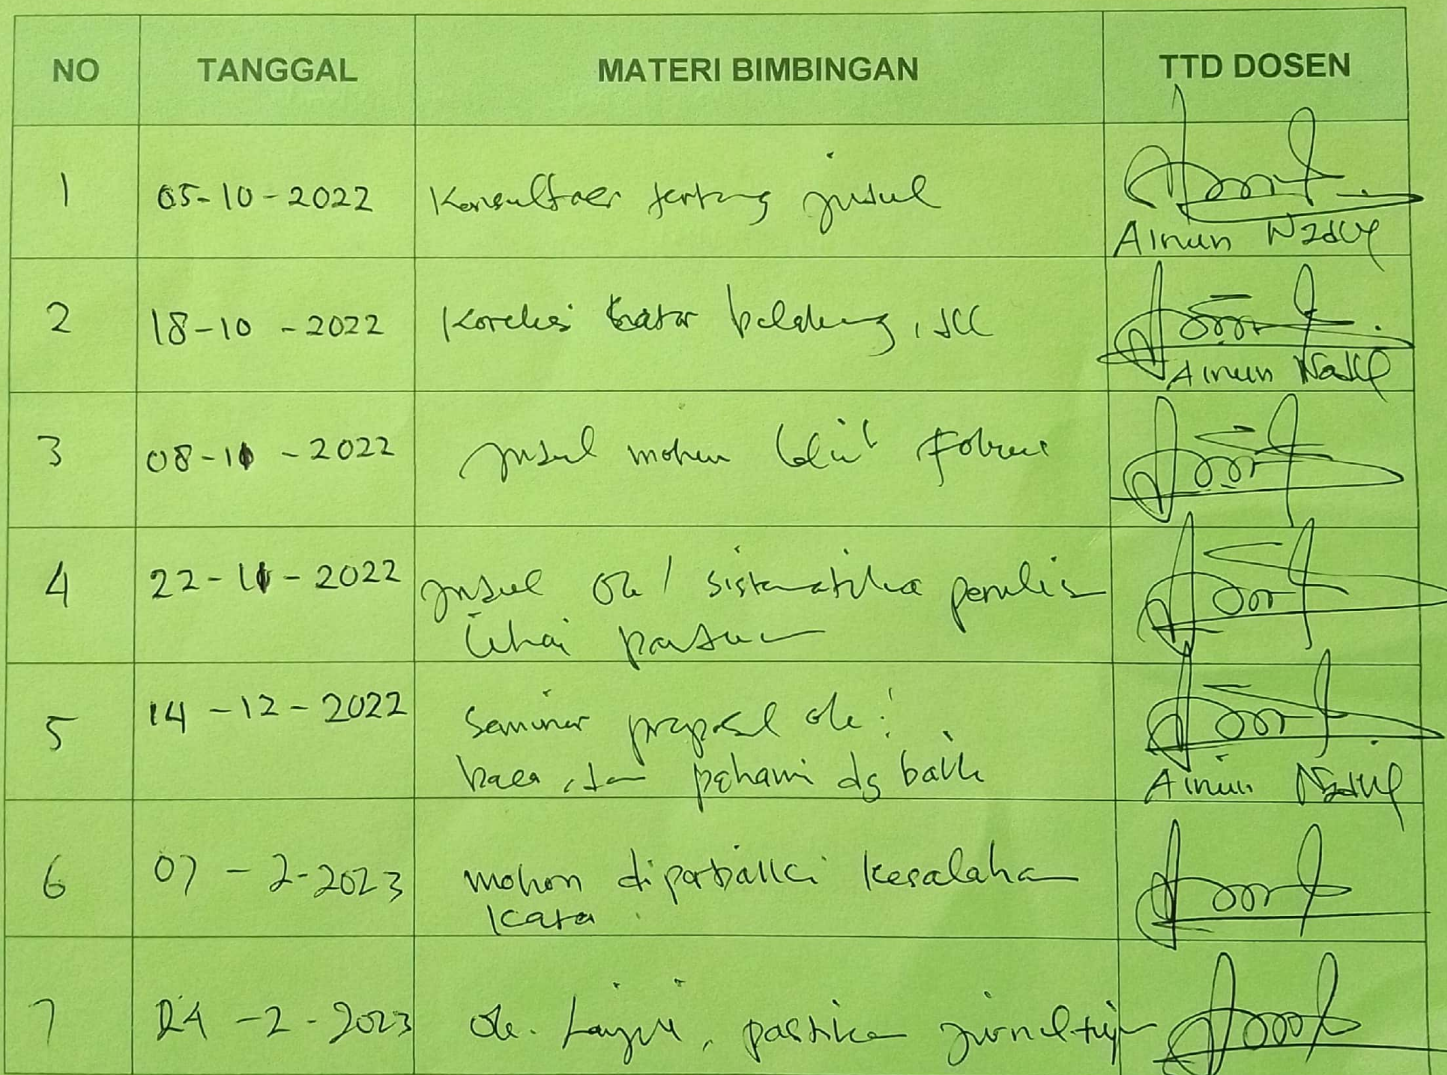 NO TANGGAL MATERI BIMBINGAN TTD DOSEN
1 05-10-2022 Konsultasi tentang judul
Ainun Nadlif
2 18-10-2022 Koreksi latar belakang, dll
Ainun Nadlif
3 08-11-2022 Judul mohon lebih fokus
4 22-11-2022 Judul ok / sistematika penulis
lihai panduan
5 14-12-2022 Seminar proposal ok!
baca, dan pahami dg baik
Ainun Nadlif
6 07-2-2023 mohon diperbaiki kesalahan
kata.
7 24-2-2023 ok. Lanjut, pastikan jurnal